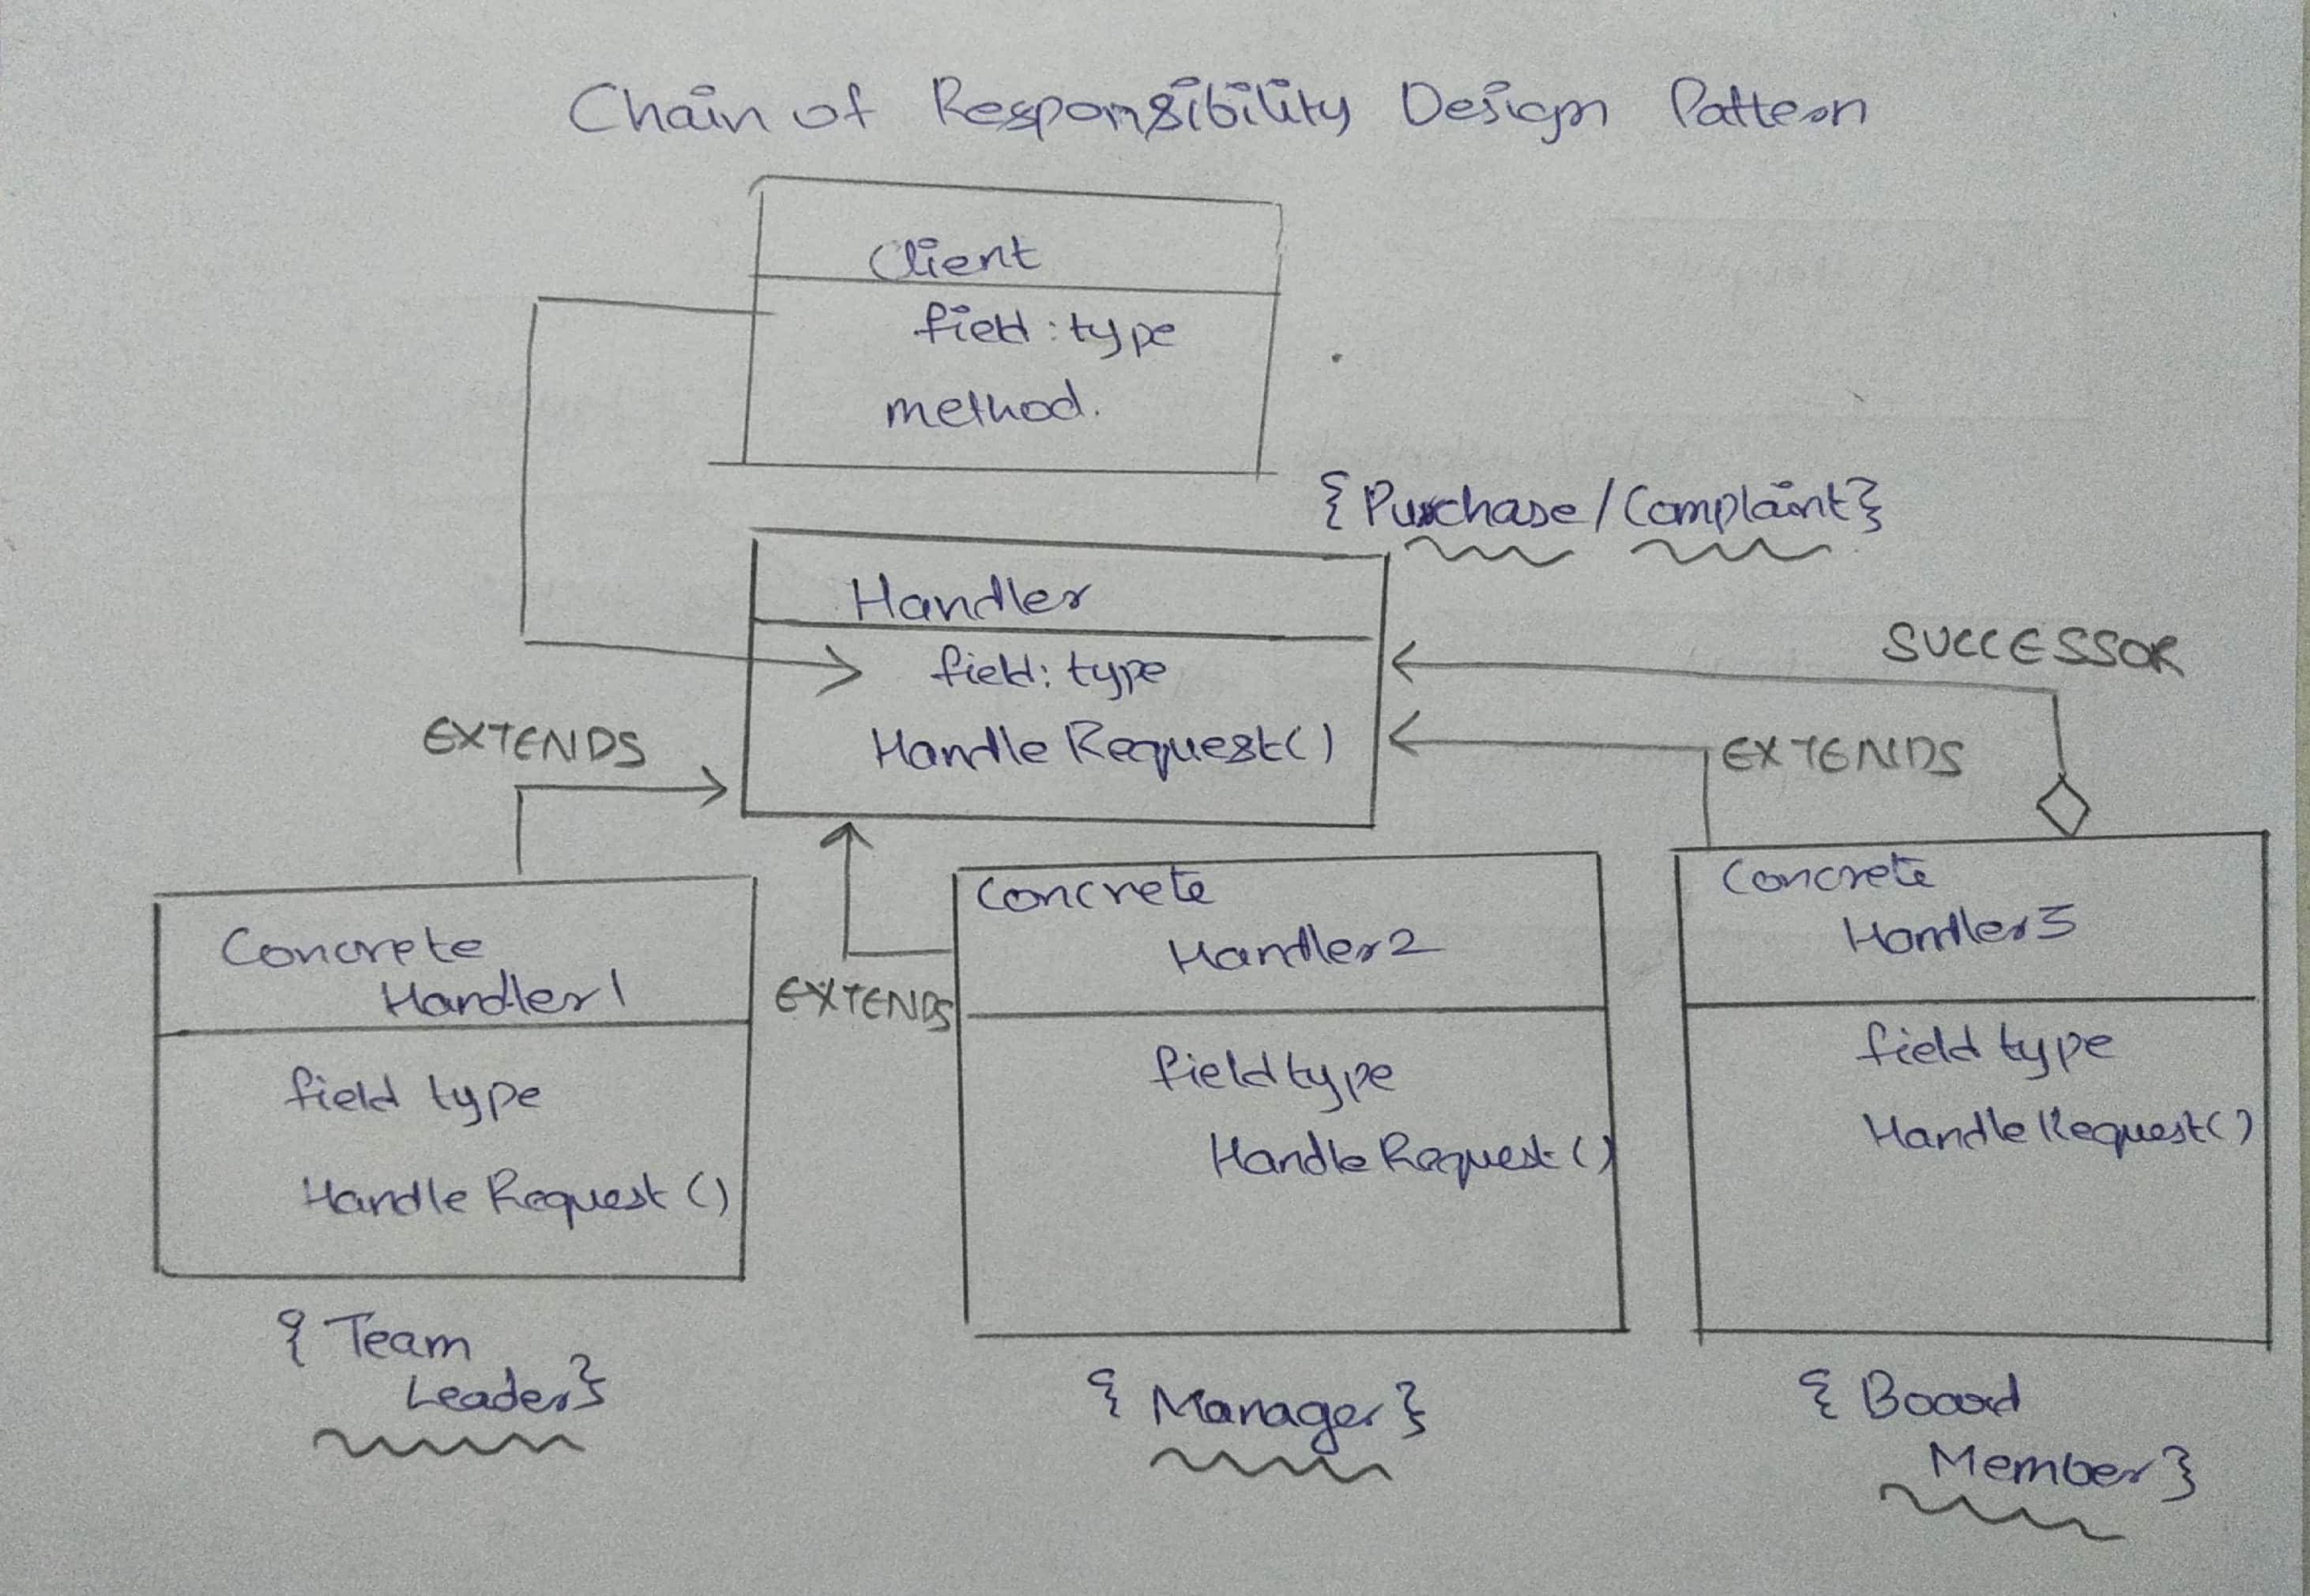 Chain of Responsibility Design Pattern
Client
field : type
method.
{Purchase / Complaint}
Handler
field : type
Handle Request ()
SUCCESSOR
EXTENDS
EXTENDS
EXTENDS
Concrete
Handler 1
field type
Handle Request ()
{ Team
Leader}
Concrete
Handler 2
field type
Handle Request ()
{ Manager }
Concrete
Handler 3
field type
Handle Request ()
{ Board
Member }